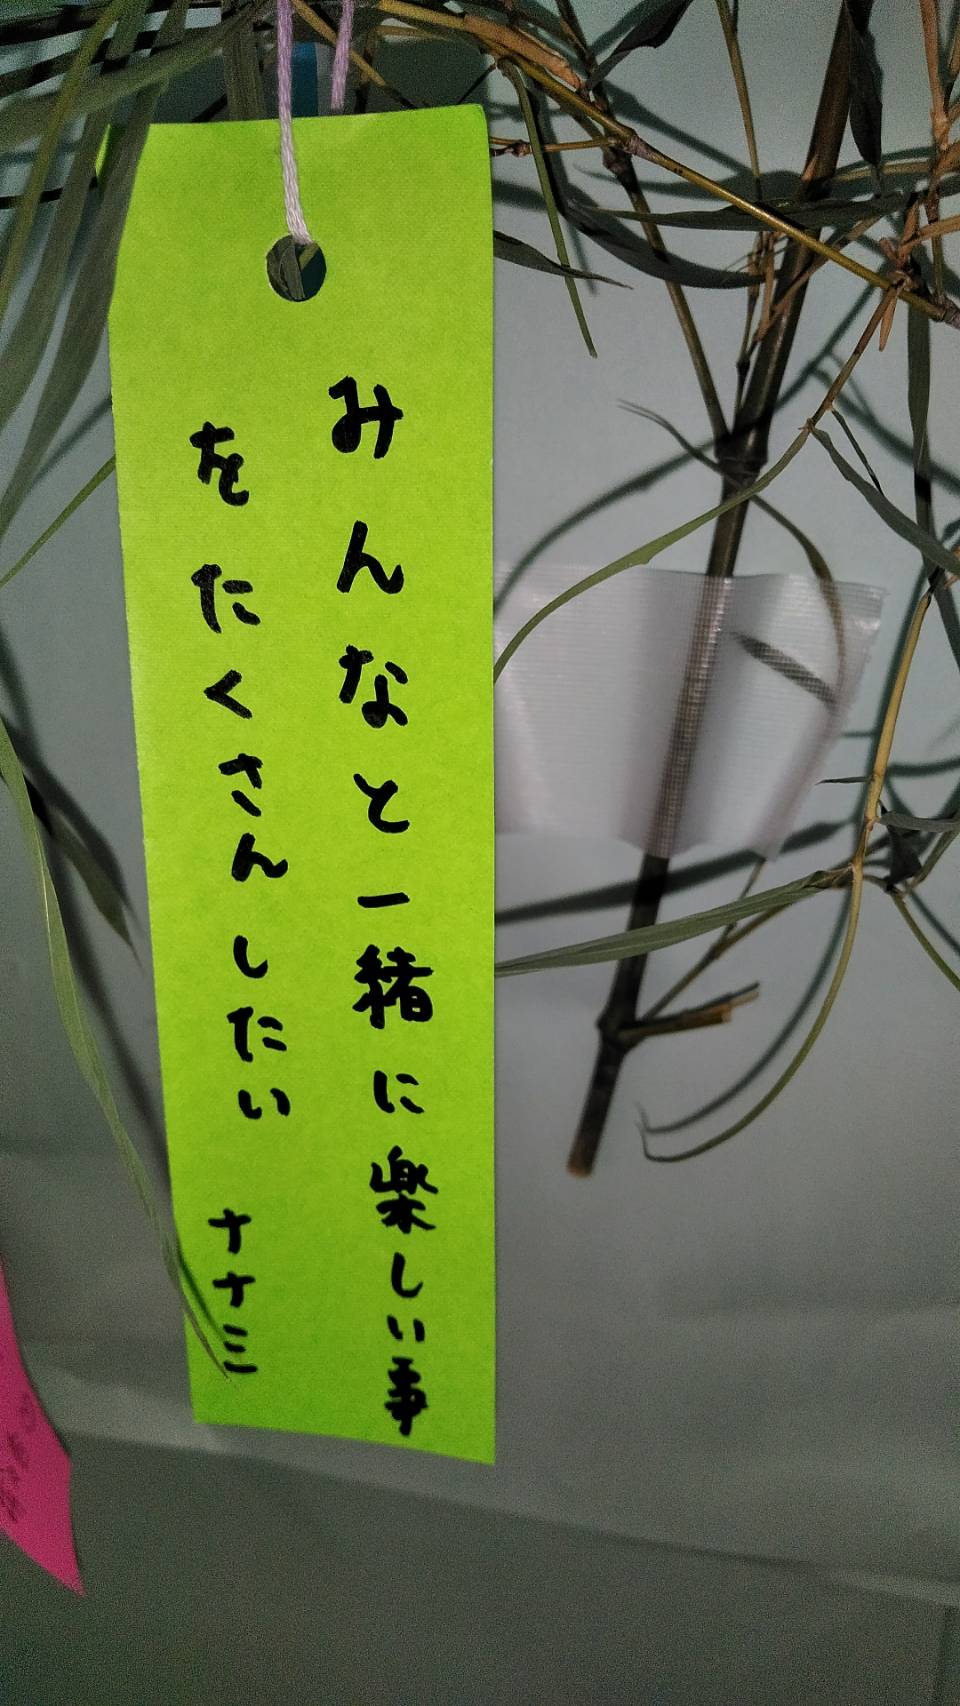 みんなと一緒に楽しい事
をたくさんしたい
ナナミ